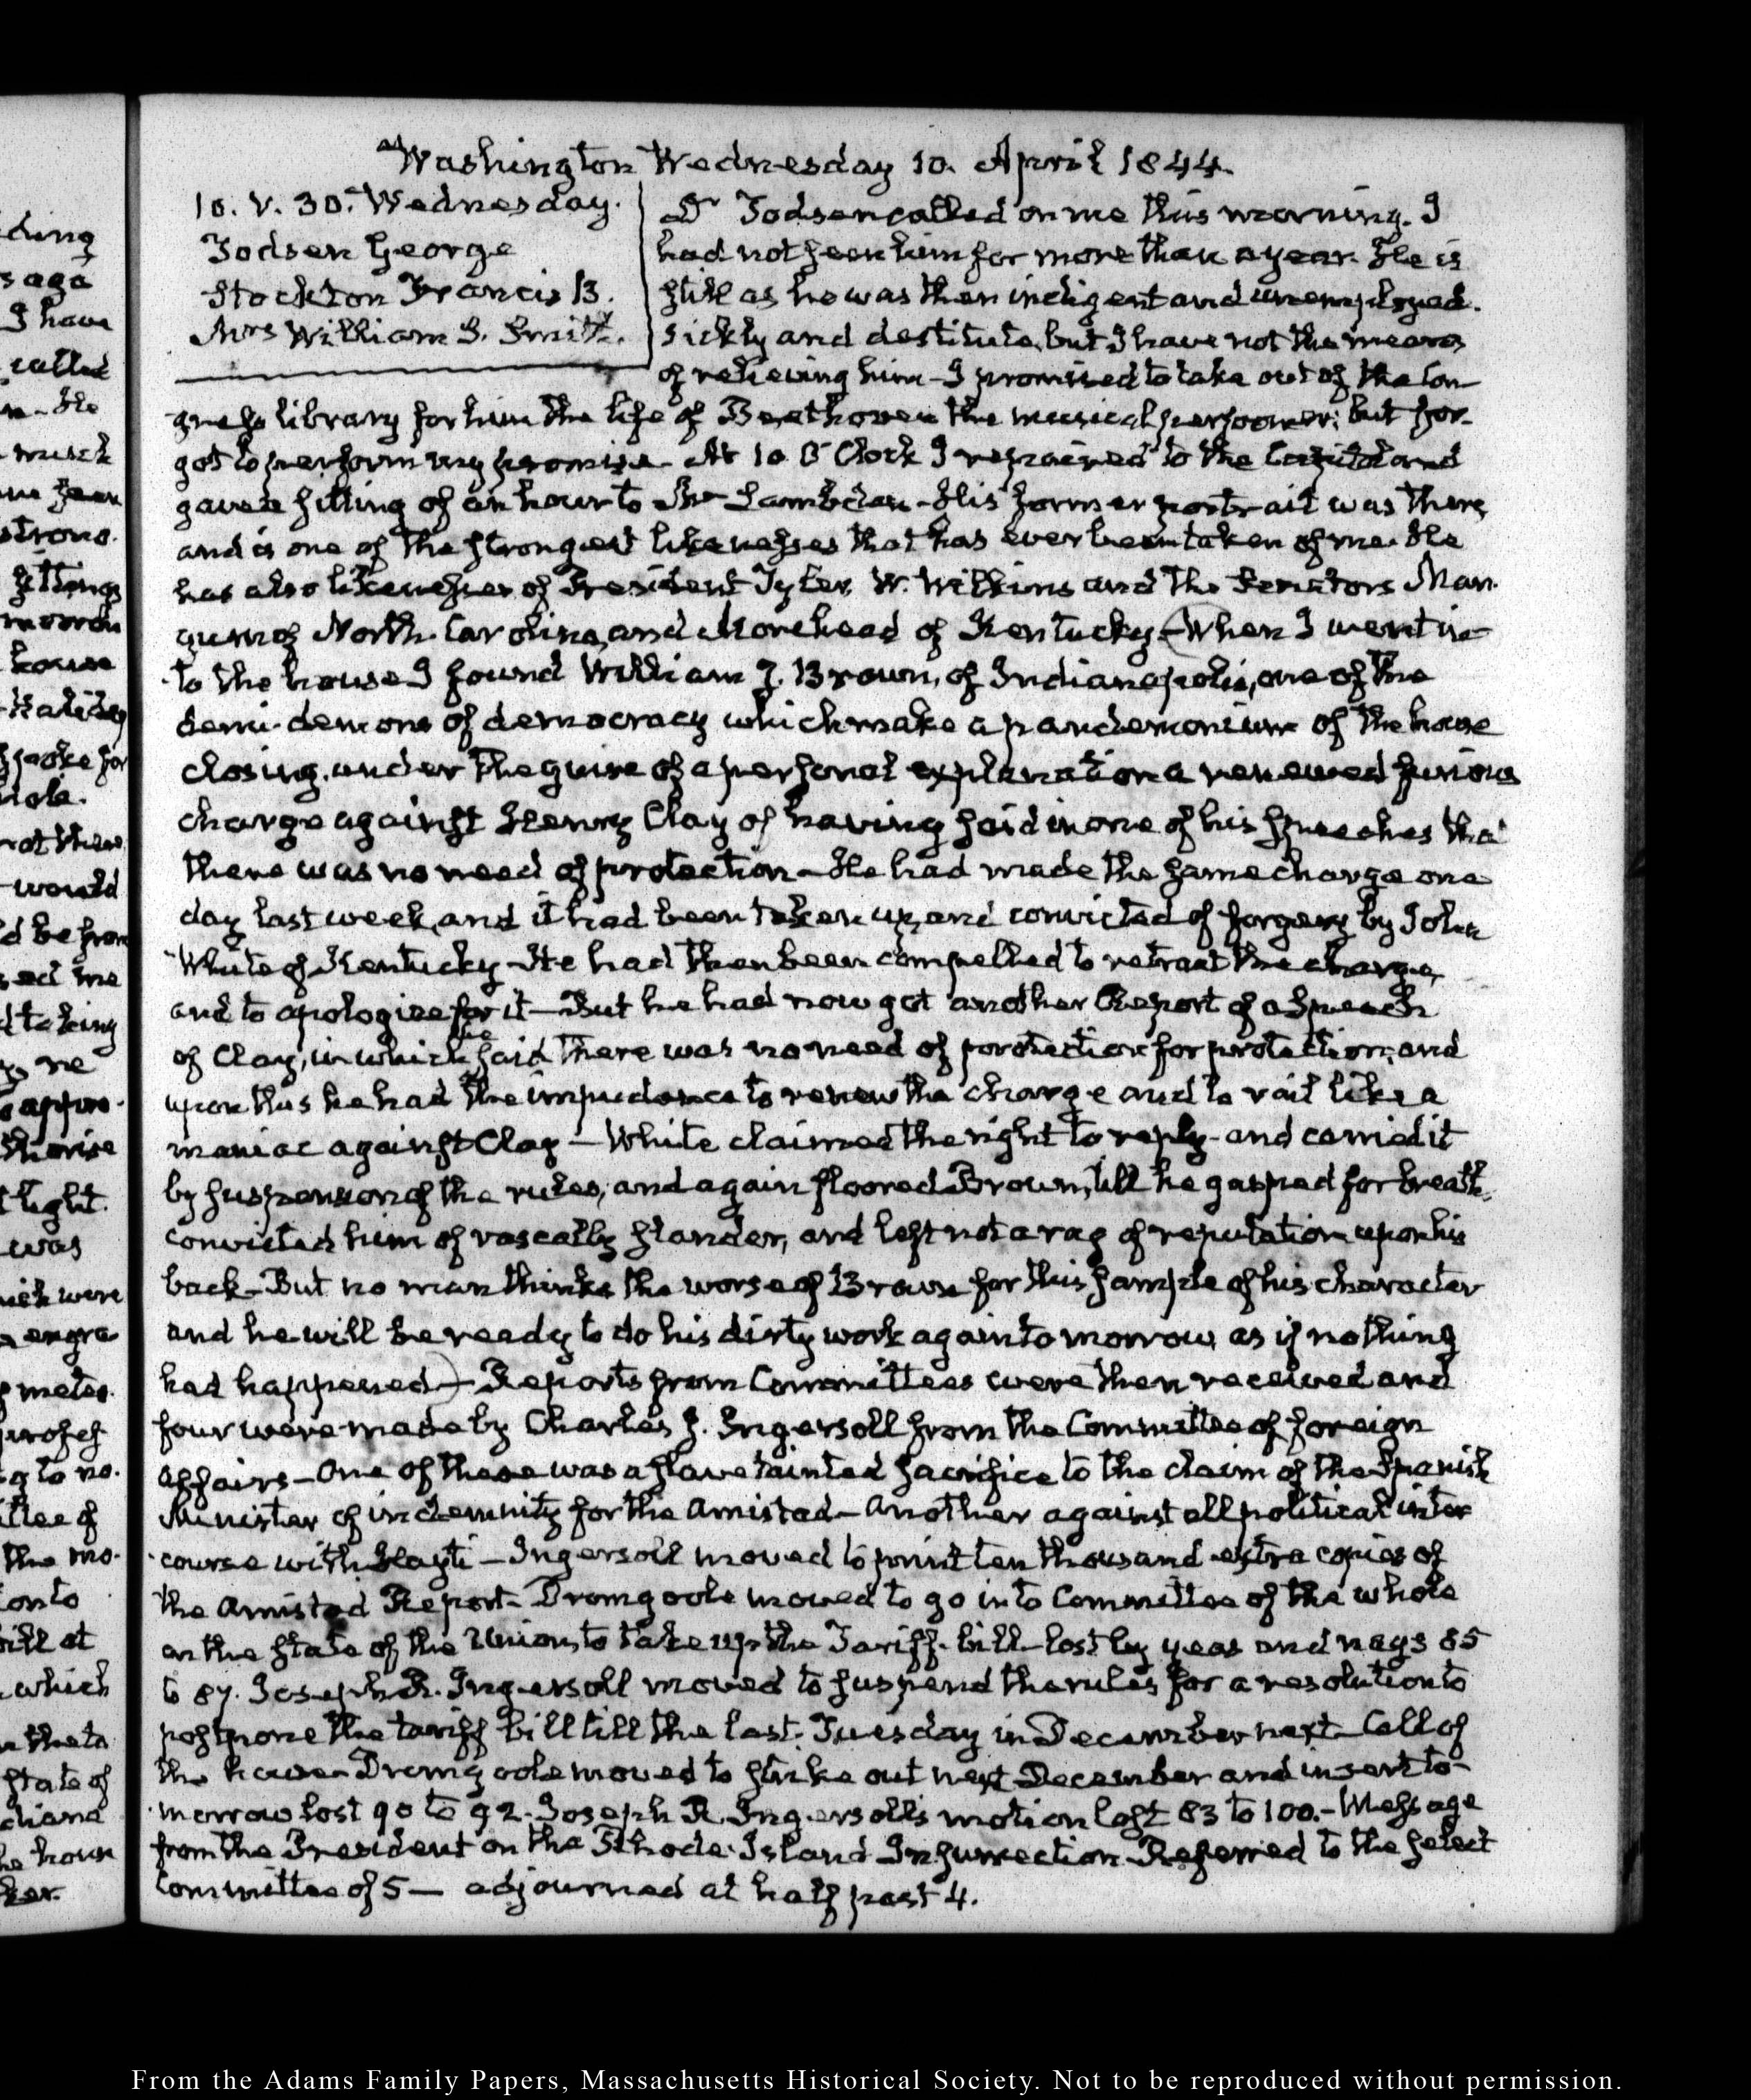 Washington Wednesday 10. April 1844.
10. V. 30. Wednesday.
Todsen George
Stockton Francis B.
Mrs William S. Smith.
Dr Todsen called on me this morning. I
had not seen him for more than a year. He is
still as he was then indigent and unemployed.
sickly and destitute, but I have not the means
of relieving him - I promised to take out of the Con-
gress library for him the life of Beethoven the musical
got to perform my promise. At 10 O'Clock I repaired to the Capitol and
gave a sitting of an hour to Mr Lambdin - His former portrait was there
and is one of the strongest likenesses that has ever been taken of me. He
has also likenesses of President Tyler, W. Wilkins and the Senators Man-
gum of North-Carolina, and Morehead of Kentucky - When I went in-
to the house I found William J. Brown, of Indianapolis, one of the
demi-demons of democracy which make a pandemonium of the house
closing, under the guise of a personal explanation a renewed furious
charge against Henry Clay of having said in one of his speeches that
there was no need of protection - He had made the same charge one
day last week, and it had been taken up, and convicted of forgery by John
White of Kentucky - He had then been compelled to retract the charge,
and to apologise for it - But he had now got another Report of a Speech
of Clay, in which he said there was no need of protection for protection, and
upon this he had the impudence to renew the charge and to rail like a
maniac against Clay - White claimed the right to reply - and carried it
by suspension of the rules, and again floored Brown, till he gasped for breath,
convicted him of rascally slander, and left not a rag of reputation upon his
back - But no man thinks the worse of Brown for this sample of his character
and he will be ready to do his dirty work again tomorrow, as if nothing
had happened - Reports from Committees were then received and
four were made by Charles J. Ingersoll from the Committee of foreign
Affairs - One of these was a slave tainted sacrifice to the claim of the Spanish
Minister of indemnity for the Amistad - Another against all political inter
course with Hayti - Ingersoll moved to print ten thousand extra copies of
the Amistad Report - Dromgoole moved to go into Committee of the whole
on the state of the Union, to take up the Tariff-bill - lost by yeas and nays 85
to 87. Joseph R. Ingersoll moved to suspend the rules for a resolution to
postpone the tariff bill till the last Tuesday in December next - Call of
the house - Dromgoole moved to strike out next December and insert to-
morrow lost 90 to 92. Joseph R. Ingersoll's motion lost 83 to 100. - Message
from the President on the Rhode-Island Insurrection Referred to the select
Committee of 5 - adjourned at half past 4.
From the Adams Family Papers, Massachusetts Historical Society. Not to be reproduced without permission.